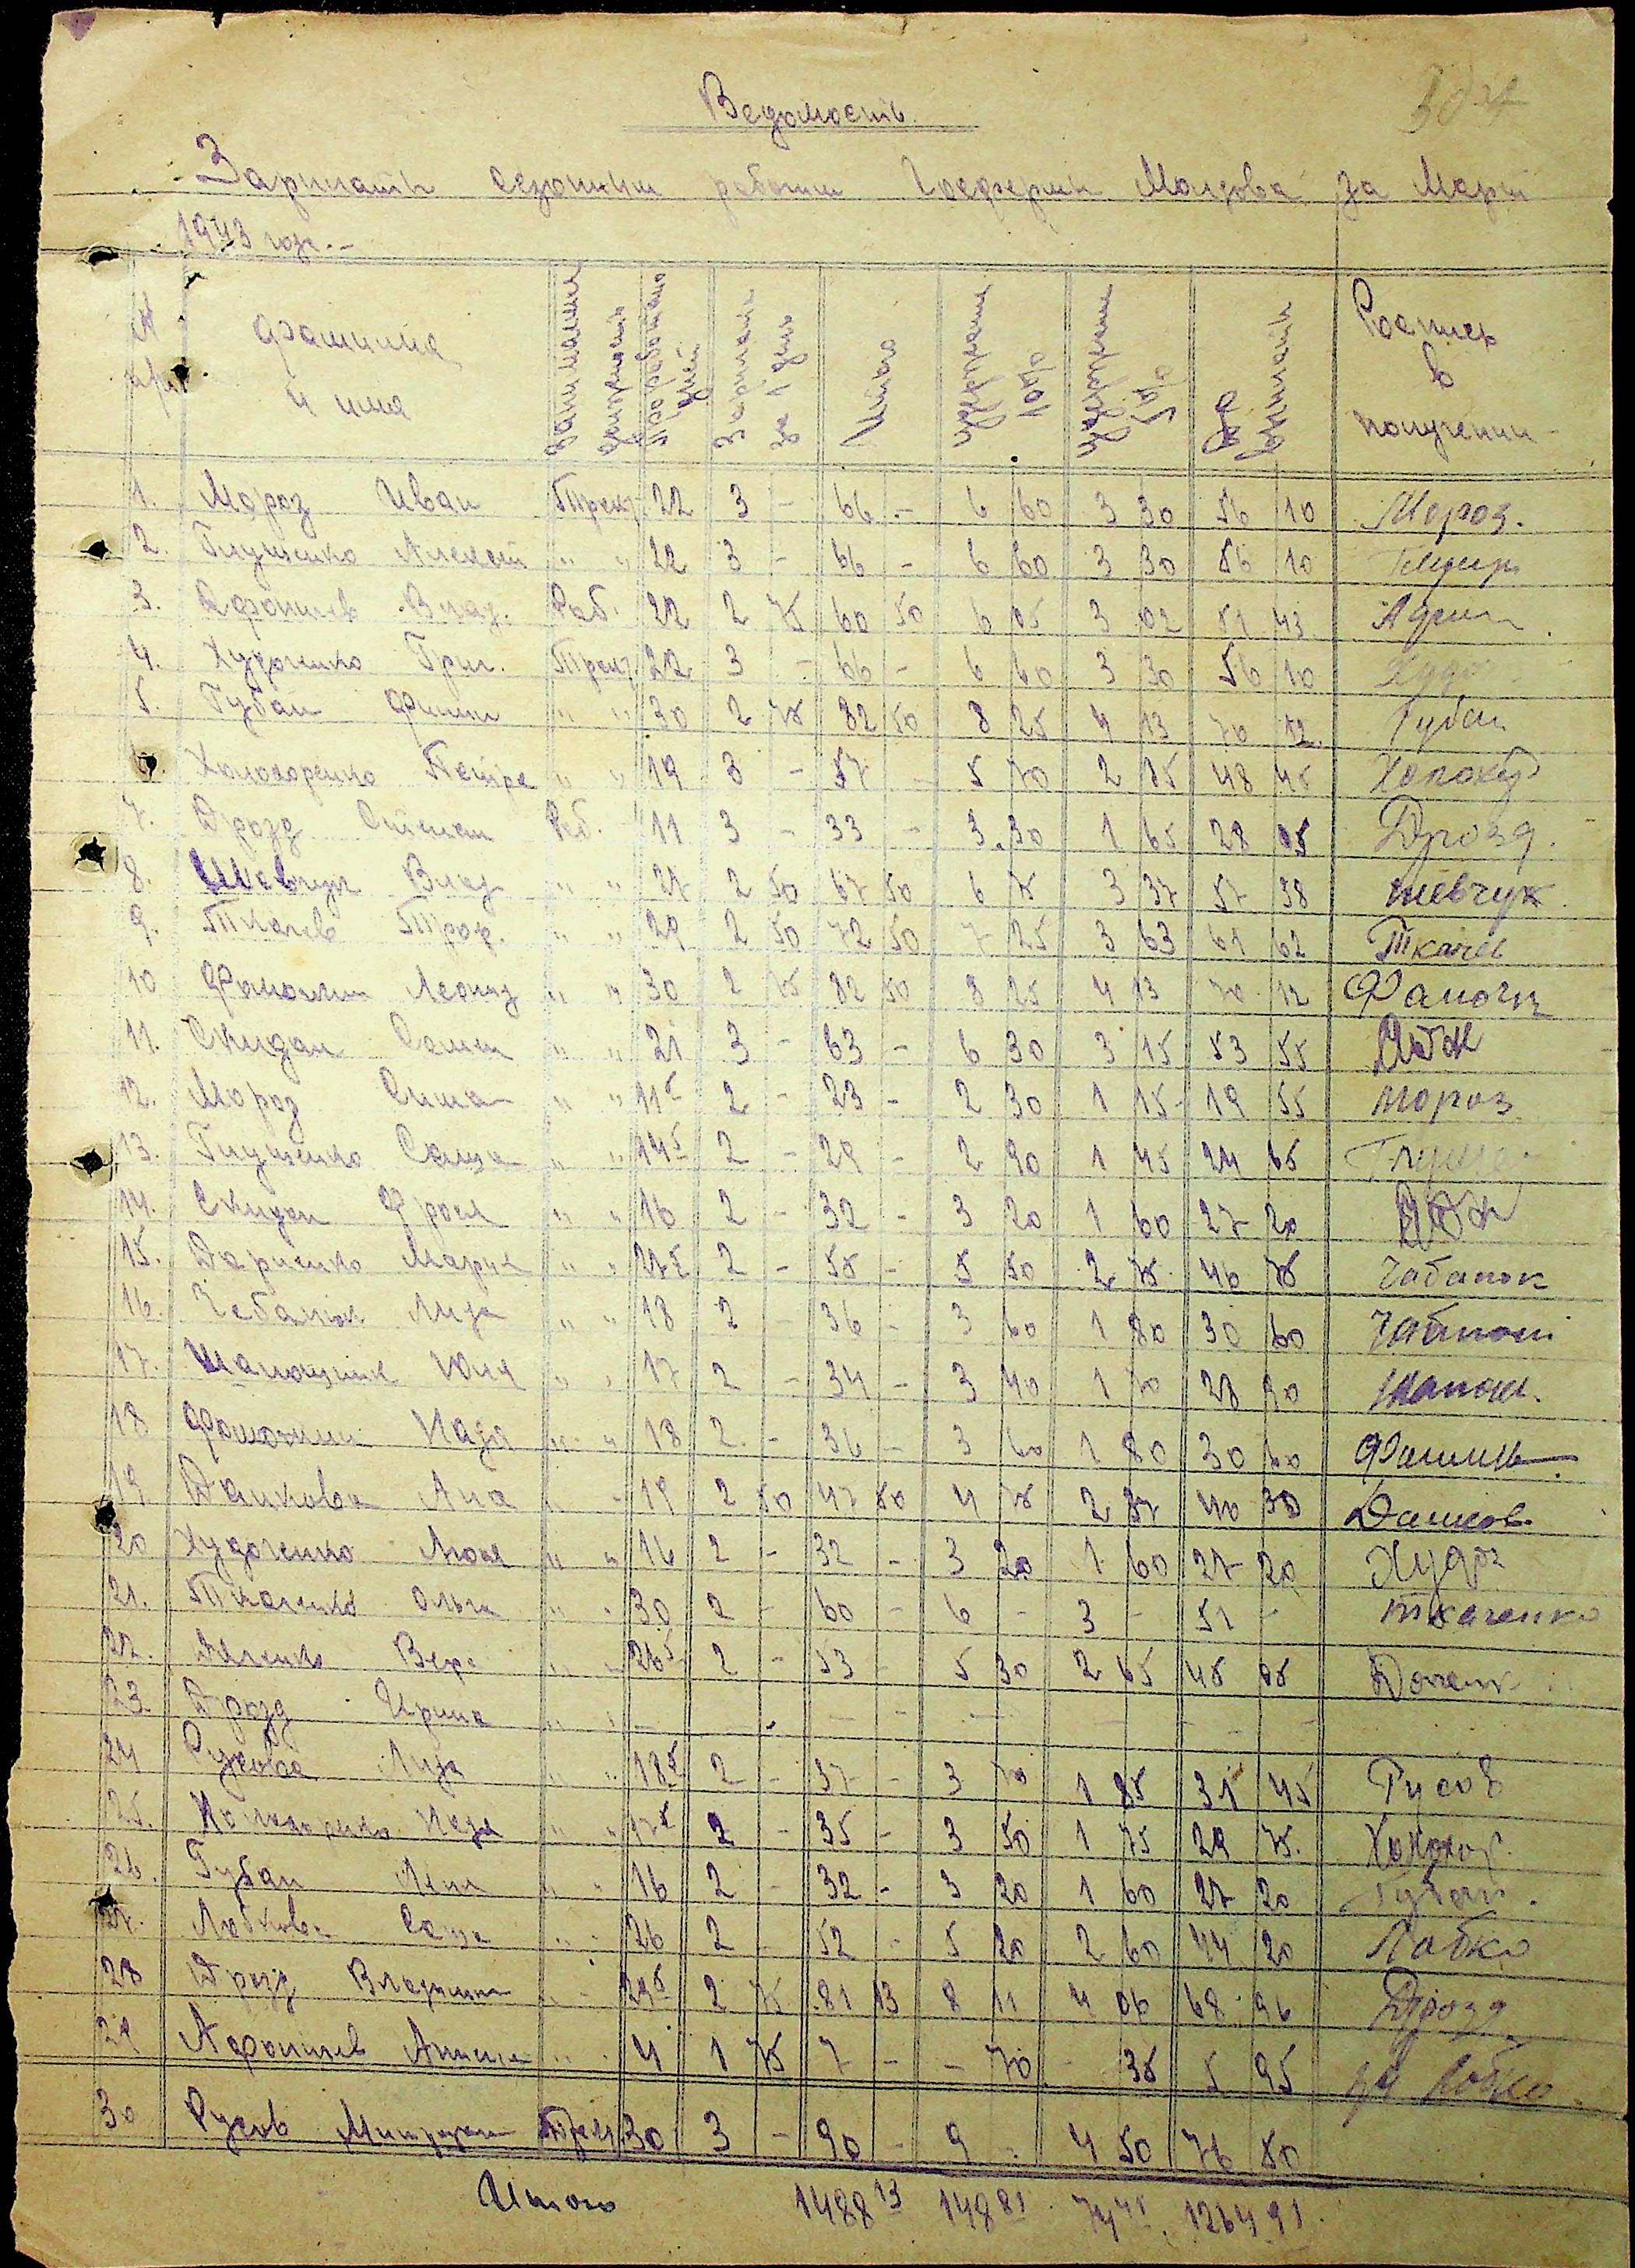 Ведомость
Зарплати сезонним рабочим Госферми Молдова за Март
1943 год.-
№ п/п Фамилия и имя Занимаемая должность Проработано дней Зарплата за 1 день Итого Удержание 10% Удержание 5% До уплати Роспись в получении
1. Мороз Иван Тракт. 22 3 - 66 - 6 60 3 30 56 10 Мороз.
2. Глущенко Алексей " " 22 3 - 66 - 6 60 3 30 56 10
3. Афониев Влад. Раб. 22 2 75 60 50 6 05 3 02 51 43 Афон
4. Худоченко Григ. Тракт. 22 3 - 66 - 6 60 3 30 56 10 Худо
5. Губан Филип " " 30 2 75 82 50 8 25 4 13 70 12 Губан
6. Холохоренко Петре " " 19 3 - 57 - 5 70 2 85 48 45
7. Дрозд Степан Раб. 11 3 - 33 - 3 30 1 65 28 05 Дрозд.
8. Шевчук Влад " " 27 2 50 67 50 6 75 3 37 57 38 шевчук
9. Ткачев Троф. " " 29 2 50 72 50 7 25 3 63 61 62 Ткачев
10 Фамочкин Леонид " " 30 2 75 82 50 8 25 4 13 70 12 Фамочк
11. Скидан Саша " " 21 3 - 63 - 6 30 3 15 53 55
12. Мороз Сима " " 11⁵ 2 - 23 - 2 30 1 15 19 55 мороз
13. Глущенко Саша " " 14⁵ 2 - 29 - 2 90 1 45 24 65 Глуще
14. Скидан Фрося " " 16 2 - 32 - 3 20 1 60 27 20
15. Дариенко Мария " " 27⁵ 2 - 55 - 5 50 2 75 46 75 Чабанюк
16. Чебанюк Лида " " 18 2 - 36 - 3 60 1 80 30 60
17. Шапошник Юля " " 17 2 - 34 - 3 40 1 70 28 90 Шапош.
18 Фамочкин Надя " " 18 2 - 36 - 3 60 1 80 30 60
19 Данкова Ана " " 19 2 50 47 50 4 75 2 37 40 38 Данков
20 Худоченко Люся " " 16 2 - 32 - 3 20 1 60 27 20 Худоч
21. Ткаченко Ольга " " 30 2 - 60 - 6 - 3 - 51 - ткаченко
22. Вера " " 26⁵ 2 - 53 - 5 30 2 65 45 05
23 Дрозд Ирина " " - - - - - - - -
24 Русова Лида " " 18⁵ 2 - 37 - 3 70 1 85 31 45 Русов
25. Холохоренко Надя " " 17⁵ 2 - 35 - 3 50 1 75 29 75. Холохор.
26. Губан Лена " " 16 2 - 32 - 3 20 1 60 27 20 Губан.
27. Лобкова Саша " " 26 2 - 52 - 5 20 2 60 44 20 Лобко
28 Дрозд Владимир " " 29⁵ 2 75 81 13 8 11 4 06 68 96 Дрозд
29 Афониев " " 4 1 75 7 - - 70 - 35 5 95 Лобко
30 Русов Тракт 30 3 - 90 - 9 - 4 50 76 50
Итого 1488 13 148 81 74 41 1264 91